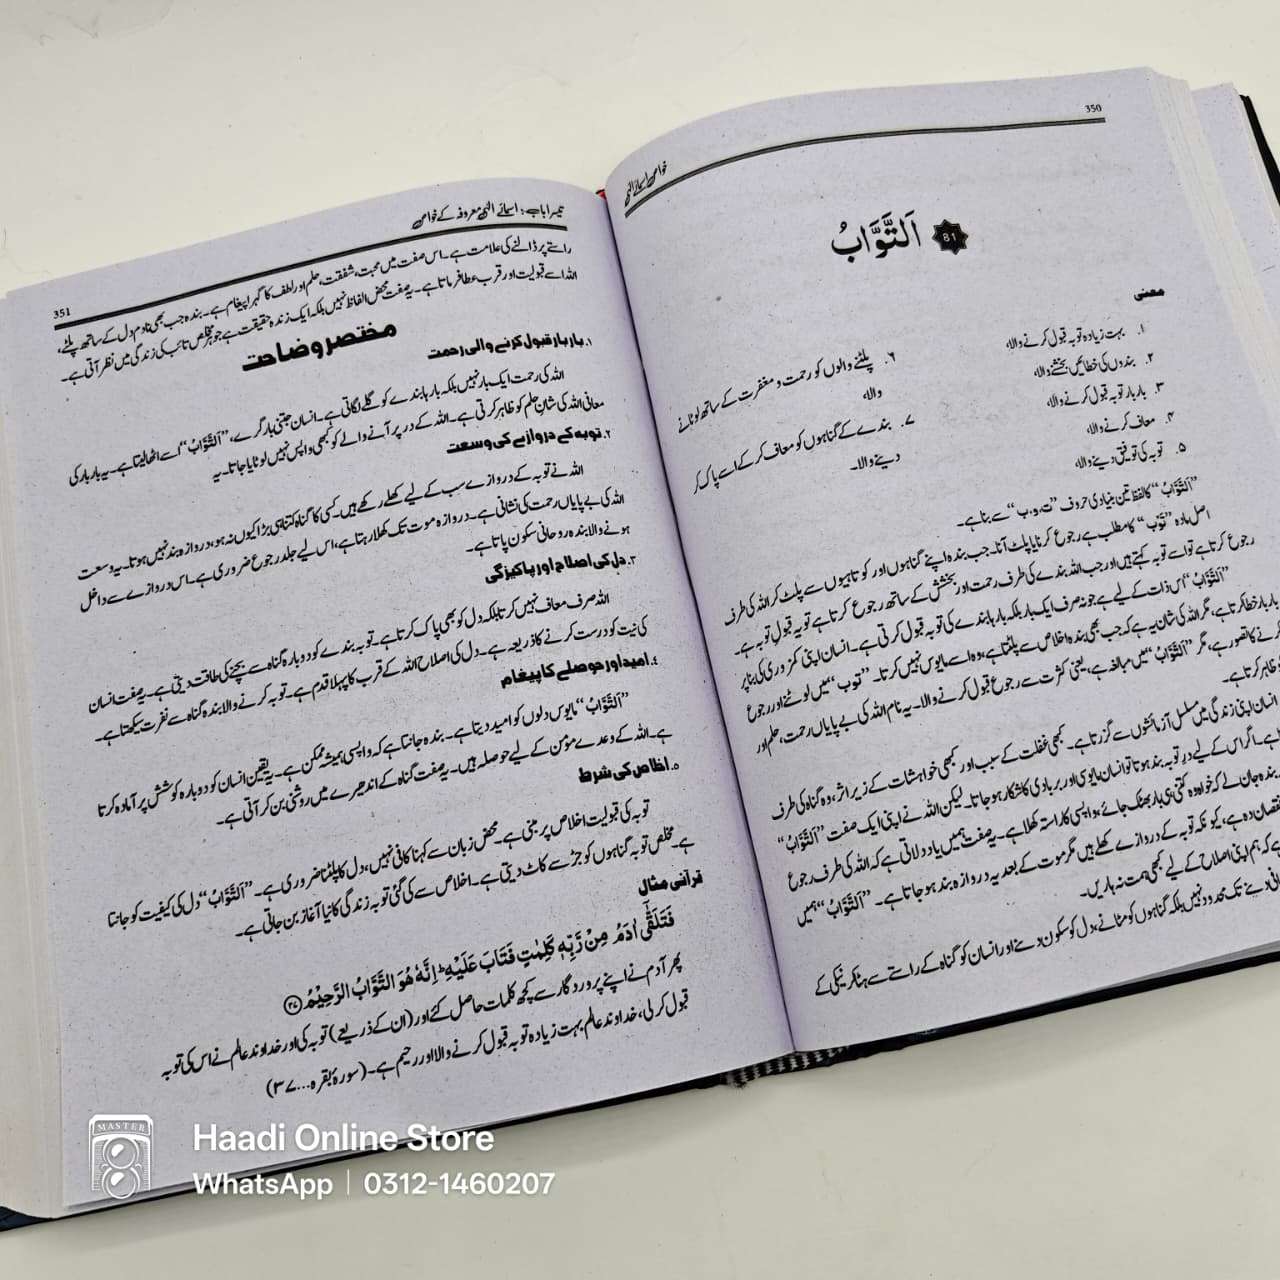 350
خواص اسمائے الٰہی
81 اَلتَّوَّابُ
معنی
۱. بہت زیادہ توبہ قبول کرنے والا،
۲. بندوں کی خطائیں بخشنے والا،
۳. بار بار توبہ قبول کرنے والا،
۴. معاف کرنے والا،
۵. توبہ کی توفیق دینے والا،
۶. پلٹنے والوں کو رحمت و مغفرت کے ساتھ لوٹانے
والا،
۷. بندے کے گناہوں کو معاف کر کے اسے پاک کر
دینے والا۔
”اَلتَّوَّابُ“ کا لفظ تین بنیادی حروف ”ت، و، ب“ سے بنا ہے۔
اصل مادہ ”تَوَبَ“ کا مطلب ہے رجوع کرنا یا پلٹ آنا۔ جب بندہ اپنے گناہوں اور کوتاہیوں سے پلٹ کر اللہ کی طرف
رجوع کرتا ہے تو اسے توبہ کہتے ہیں اور جب اللہ بندے کی طرف رحمت اور بخشش کے ساتھ رجوع کرتا ہے تو یہ قبولِ توبہ ہے۔
”اَلتَّوَّابُ“ اس ذات کے لیے ہے جو نہ صرف ایک بار بلکہ بار ہا بندے کی توبہ قبول کرتی ہے۔ انسان اپنی کمزوری کی بنا پر
بار بار خطا کرتا ہے، مگر اللہ کی شان یہ ہے کہ جب بھی بندہ اخلاص سے پلٹتا ہے، وہ اسے مایوس نہیں کرتا۔ ”توب“ میں لوٹنے اور رجوع
کرنے کا تصور ہے، مگر ”اَلتَّوَّابُ“ میں مبالغہ ہے، یعنی کثرت سے رجوع قبول کرنے والا۔ یہ نام اللہ کی بے پایاں رحمت، حلم اور
ظاہر کرتا ہے۔
انسان اپنی زندگی میں مسلسل آزمائشوں سے گزرتا ہے۔ کبھی غفلت کے سبب اور کبھی خواہشات کے زیر اثر، وہ گناہ کی طرف
ہے۔ اگر اس کے لیے درِ توبہ بند ہوتا تو انسان مایوسی اور بربادی کا شکار ہو جاتا۔ لیکن اللہ نے اپنی ایک صفت ”اَلتَّوَّابُ“
بندہ جان لے کہ خواہ وہ کتنی ہی بار بھٹک جائے، واپسی کا راستہ کھلا ہے۔ یہ صفت ہمیں یاد دلاتی ہے کہ اللہ کی طرف رجوع
نقصان دہ ہے، کیونکہ توبہ کے دروازے کھلے ہیں مگر موت کے بعد یہ دروازہ بند ہو جاتا ہے۔ ”اَلتَّوَّابُ“ ہمیں
ہے کہ ہم اپنی اصلاح کے لیے کبھی ہمت نہ ہاریں۔
دینے تک محدود نہیں بلکہ گناہوں کو مٹانے، دل کو سکون دینے اور انسان کو گناہ کے راستے سے ہٹا کر نیکی کے
تیسرا باب: اسمائے الٰہی معروفہ کے خواص
351
راستے پر ڈالنے کی علامت ہے۔ اس صفت میں محبت، شفقت، حلم اور لطف کا گہرا پیغام ہے۔ بندہ جب بھی نادم دل کے ساتھ پلٹے،
اللہ اسے قبولیت اور قرب عطا فرماتا ہے۔ یہ صفت محض الفاظ نہیں بلکہ ایک زندہ حقیقت ہے جو ہر مخلص تائب کی زندگی میں نظر آتی ہے۔
مختصر وضاحت
۱. بار بار قبول کرنے والی رحمت
اللہ کی رحمت ایک بار نہیں بلکہ بار ہا بندے کو گلے لگاتی ہے۔ انسان جتنی بار گرے، ”اَلتَّوَّابُ“ اسے اٹھا لیتا ہے۔ یہ بار بار کی
معافی اللہ کی شانِ حلم کو ظاہر کرتی ہے۔ اللہ کے در پر آنے والے کو کبھی واپس نہیں لوٹایا جاتا۔ یہ
۲. توبہ کے دروازے کی وسعت
اللہ نے توبہ کے دروازے سب کے لیے کھلے رکھے ہیں۔ کسی کا گناہ کتنا ہی بڑا کیوں نہ ہو، دروازہ بند نہیں ہوتا۔ یہ وسعت
اللہ کی بے پایاں رحمت کی نشانی ہے۔ دروازہ موت تک کھلا رہتا ہے، اس لیے جلد رجوع ضروری ہے۔ اس دروازے سے داخل
ہونے والا بندہ روحانی سکون پاتا ہے۔
۳. دل کی اصلاح اور پاکیزگی
اللہ صرف معاف نہیں کرتا بلکہ دل کو بھی پاک کرتا ہے۔ توبہ بندے کو دوبارہ گناہ سے بچنے کی طاقت دیتی ہے۔ یہ صفت انسان
کی نیت کو درست کرنے کا ذریعہ ہے۔ دل کی اصلاح اللہ کے قرب کا پہلا قدم ہے۔ توبہ کرنے والا بندہ گناہ سے نفرت سیکھتا ہے۔
۴. امید اور حوصلے کا پیغام
”اَلتَّوَّابُ“ مایوس دلوں کو امید دیتا ہے۔ بندہ جانتا ہے کہ واپسی ہمیشہ ممکن ہے۔ یہ یقین انسان کو دوبارہ کوشش پر آمادہ کرتا
ہے۔ اللہ کے وعدے مؤمن کے لیے حوصلہ ہیں۔ یہ صفت گناہ کے اندھیرے میں روشنی بن کر آتی ہے۔
۵. اخلاص کی شرط
توبہ کی قبولیت اخلاص پر مبنی ہے۔ محض زبان سے کہنا کافی نہیں، دل کا پلٹنا ضروری ہے۔ ”اَلتَّوَّابُ“ دل کی کیفیت کو جانتا
ہے۔ مخلص توبہ گناہوں کو جڑ سے کاٹ دیتی ہے۔ اخلاص سے کی گئی توبہ زندگی کا نیا آغاز بن جاتی ہے۔
قرآنی مثال
فَتَلَقّٰٓى اٰدَمُ مِنْ رَّبِّهٖ كَلِمٰتٍ فَتَابَ عَلَيْهِ ؕ اِنَّهٗ هُوَ التَّوَّابُ الرَّحِيْمُ ۝۳۷
پھر آدم نے اپنے پروردگار سے کچھ کلمات حاصل کئے اور (ان کے ذریعے) توبہ کی اور خداوند عالم نے اس کی توبہ
قبول کر لی، خداوند عالم بہت زیادہ توبہ قبول کرنے والا اور رحیم ہے۔ (سورہ بقرہ...۳۷)
MASTER
Haadi Online Store
WhatsApp | 0312-1460207